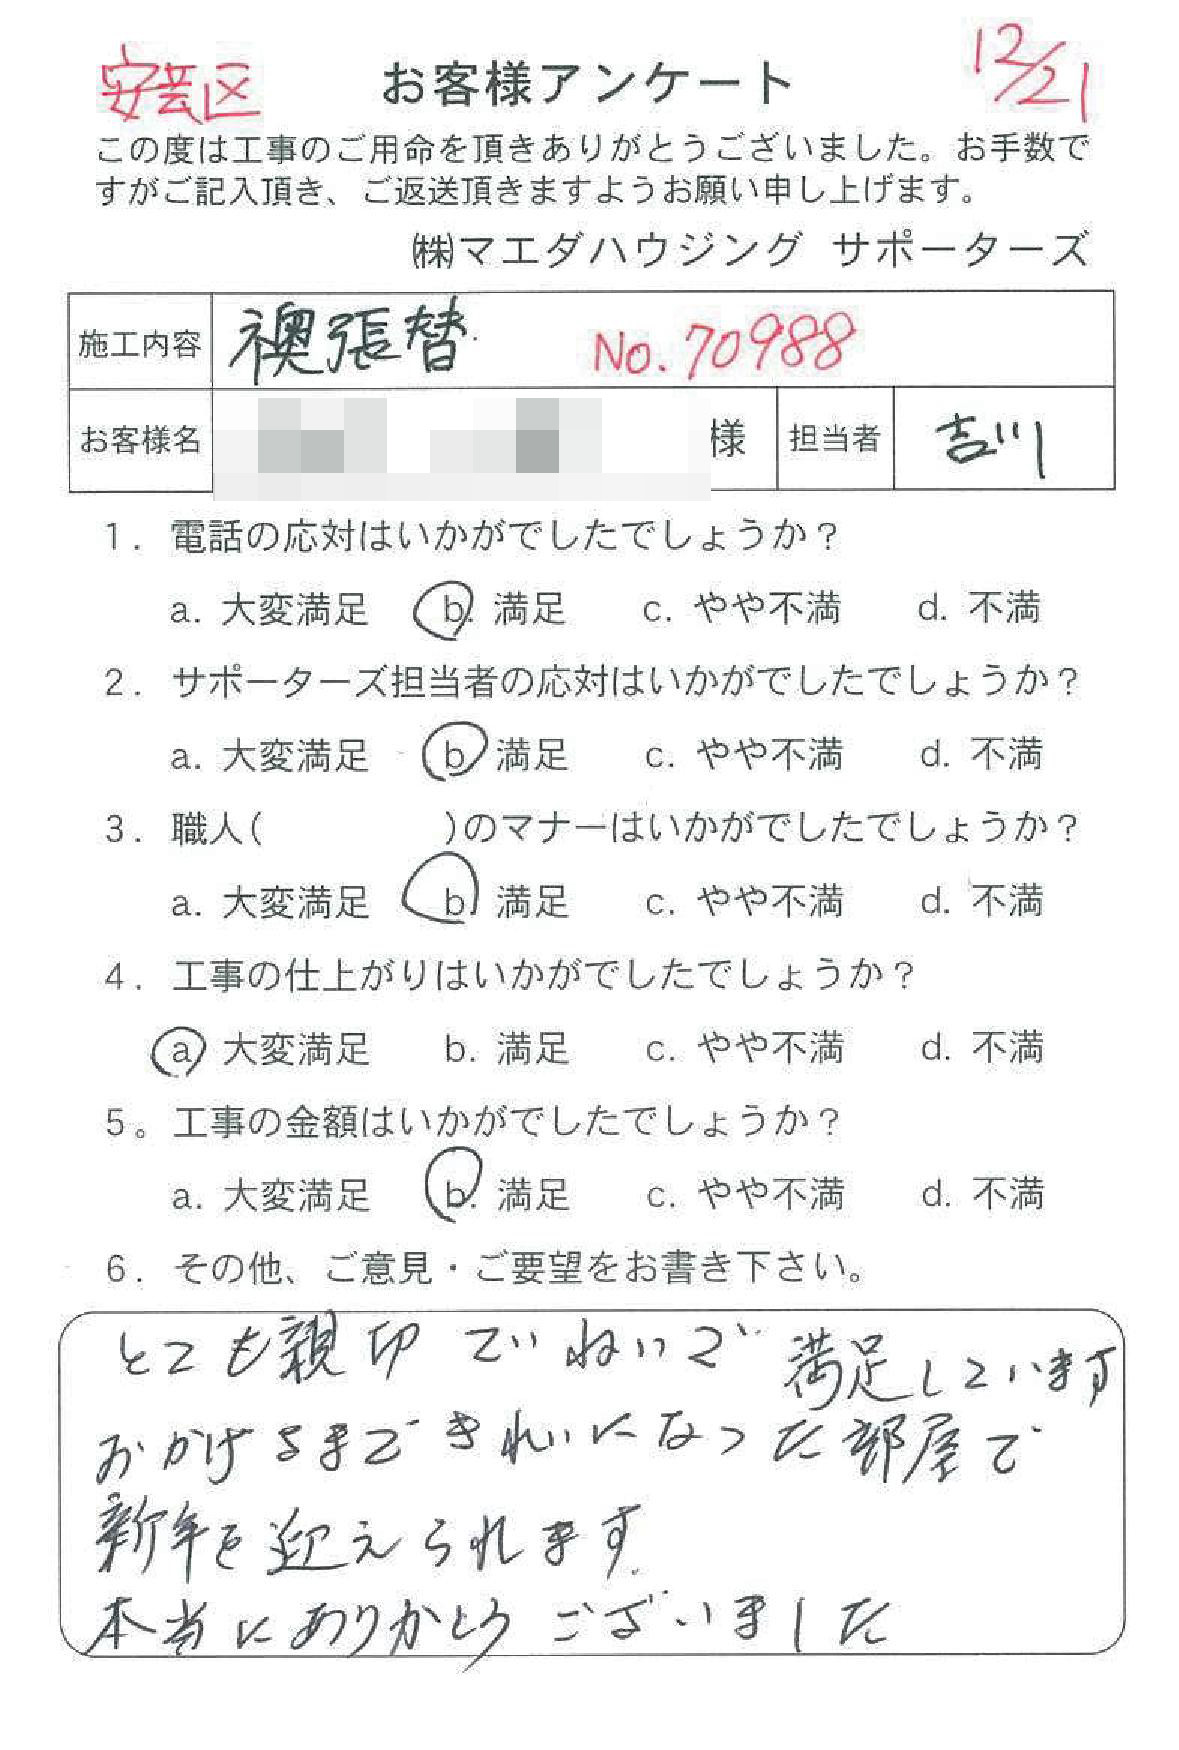 安芸区 お客様アンケート 12/21
この度は工事のご用命を頂きありがとうございました。お手数で
すがご記入頂き、ご返送頂きますようお願い申し上げます。
㈱マエダハウジング サポーターズ
施工内容 襖張替 No.70988
お客様名 様 担当者 吉川
1. 電話の応対はいかがでしたでしょうか?
a. 大変満足 b. 満足 c. やや不満 d. 不満
2. サポーターズ担当者の応対はいかがでしたでしょうか?
a. 大変満足 b. 満足 c. やや不満 d. 不満
3. 職人( )のマナーはいかがでしたでしょうか?
a. 大変満足 b. 満足 c. やや不満 d. 不満
4. 工事の仕上がりはいかがでしたでしょうか?
a. 大変満足 b. 満足 c. やや不満 d. 不満
5。工事の金額はいかがでしたでしょうか?
a. 大変満足 b. 満足 c. やや不満 d. 不満
6. その他、ご意見・ご要望をお書き下さい。
とても親切 ていねいで 満足しています
おかげさまで きれいになった部屋で
新年を迎えられます
本当にありがとう ございました